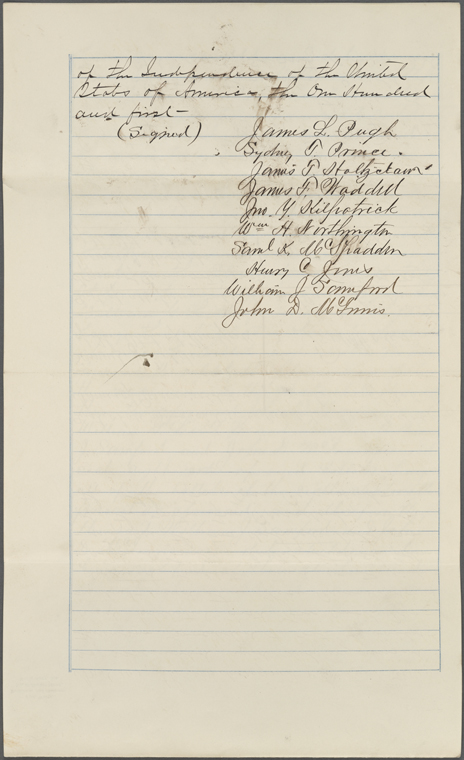 of the Independence of the United
States of America, the One Hundred
and first—
(Signed)
James L. Pugh
Sydney T. Prince.
James T. Holtzclaw
James F. Waddell
Jno. Y. Kilpatrick
Wm H. Northington
Saml K. McSpadden
Henry C Jones
William J Samford
John D. McInnis.